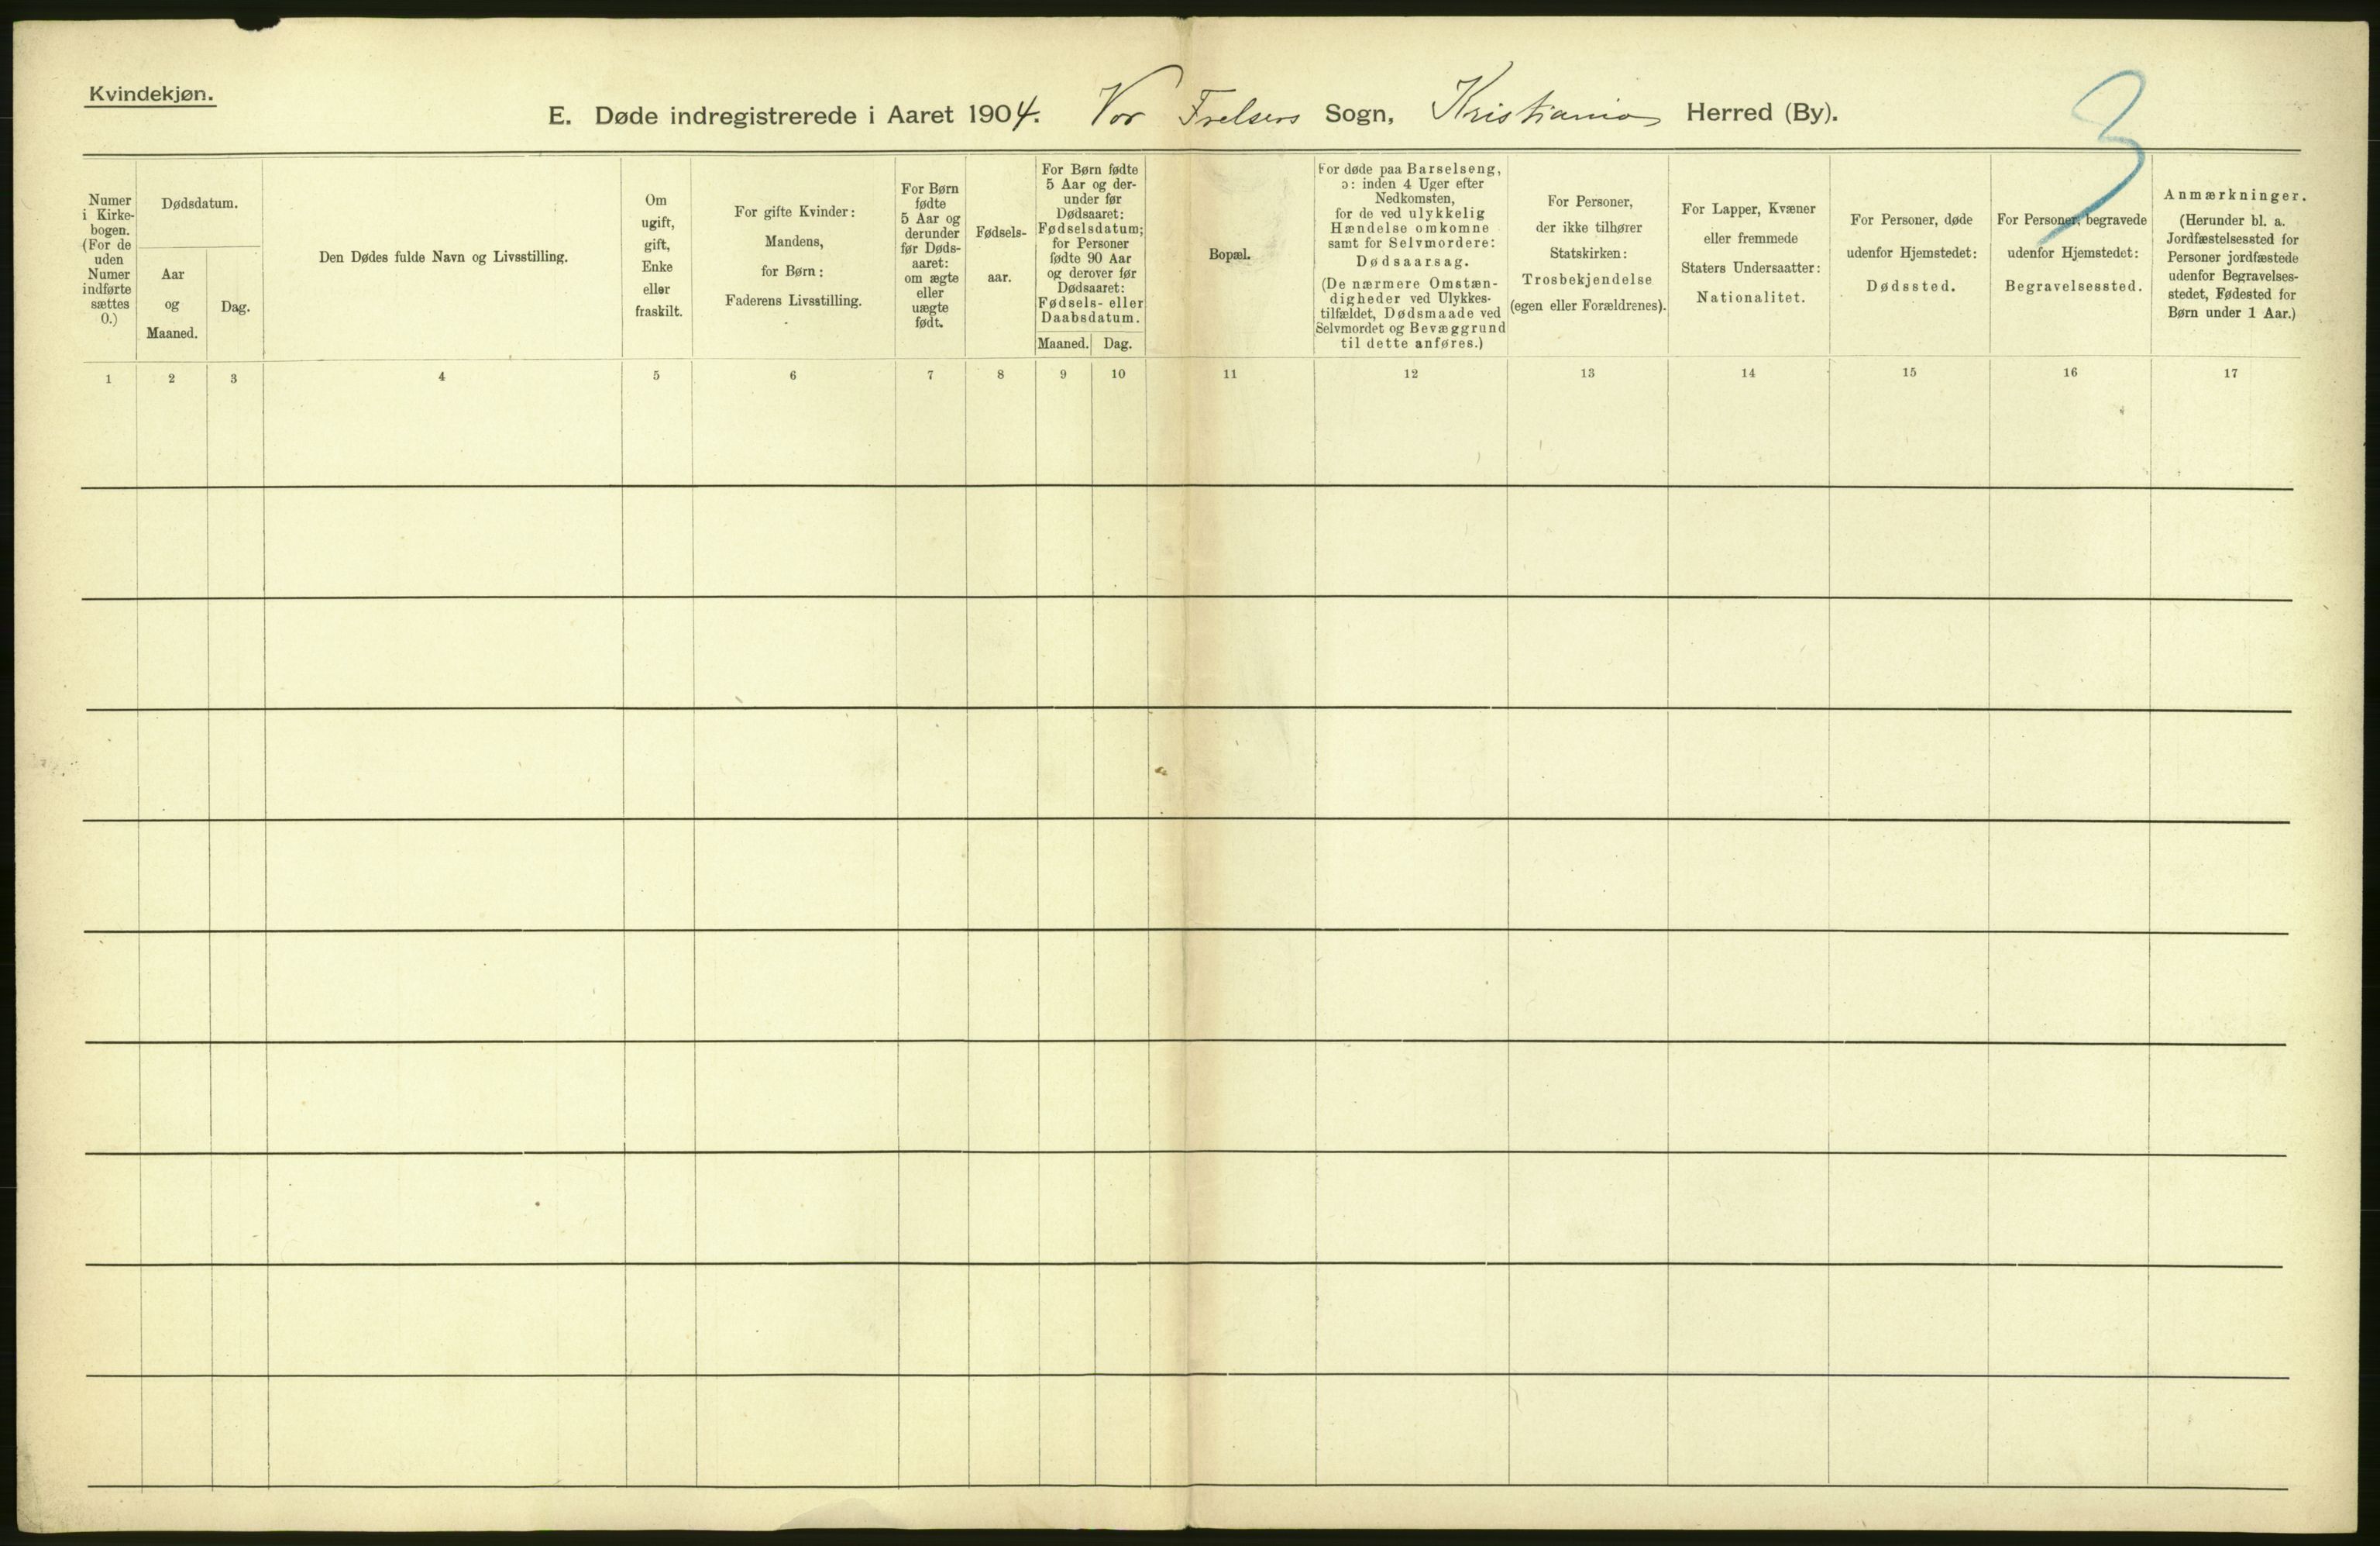 Kvindekjøn.
E. Døde indregistrerede i Aaret 1904. Vor Frelsers Sogn, Kristiania Herred (By).
3
Numer
i Kirke-
bogen.
(For de
uden
Numer
indførte
sættes
0.)
Dødsdatum.
Aar
og
Maaned.
Dag.
Den Dødes fulde Navn og Livsstilling.
Om
ugift,
gift,
Enke
eller
fraskilt.
For gifte Kvinder:
Mandens,
for Børn:
Faderens Livsstilling.
For Børn
fødte
5 Aar og
derunder
før Døds-
aaret:
om ægte
eller
uægte
født.
Fødsels-
aar.
For Børn fødte
5 Aar og der-
under før
Dødsaaret:
Fødselsdatum;
for Personer
fødte 90 Aar
og derover før
Dødsaaret:
Fødsels- eller
Daabsdatum.
Maaned.
Dag.
Bopæl.
For døde paa Barselseng,
ɔ: inden 4 Uger efter
Nedkomsten,
for de ved ulykkelig
Hændelse omkomne
samt for Selvmordere:
Dødsaarsag.
(De nærmere Omstæn-
digheder ved Ulykkes-
tilfældet, Dødsmaade ved
Selvmordet og Bevæggrund
til dette anføres.)
For Personer,
der ikke tilhører
Statskirken:
Trosbekjendelse
(egen eller Forældrenes).
For Lapper, Kvæner
eller fremmede
Staters Undersaatter:
Nationalitet.
For Personer, døde
udenfor Hjemstedet:
Dødssted.
For Personer, begravede
udenfor Hjemstedet:
Begravelsessted.
Anmærkninger.
(Herunder bl. a.
Jordfæstelsessted for
Personer jordfæstede
udenfor Begravelses-
stedet, Fødested for
Børn under 1 Aar.)
1 2 3 4 5 6 7 8 9 10 11 12 13 14 15 16 17